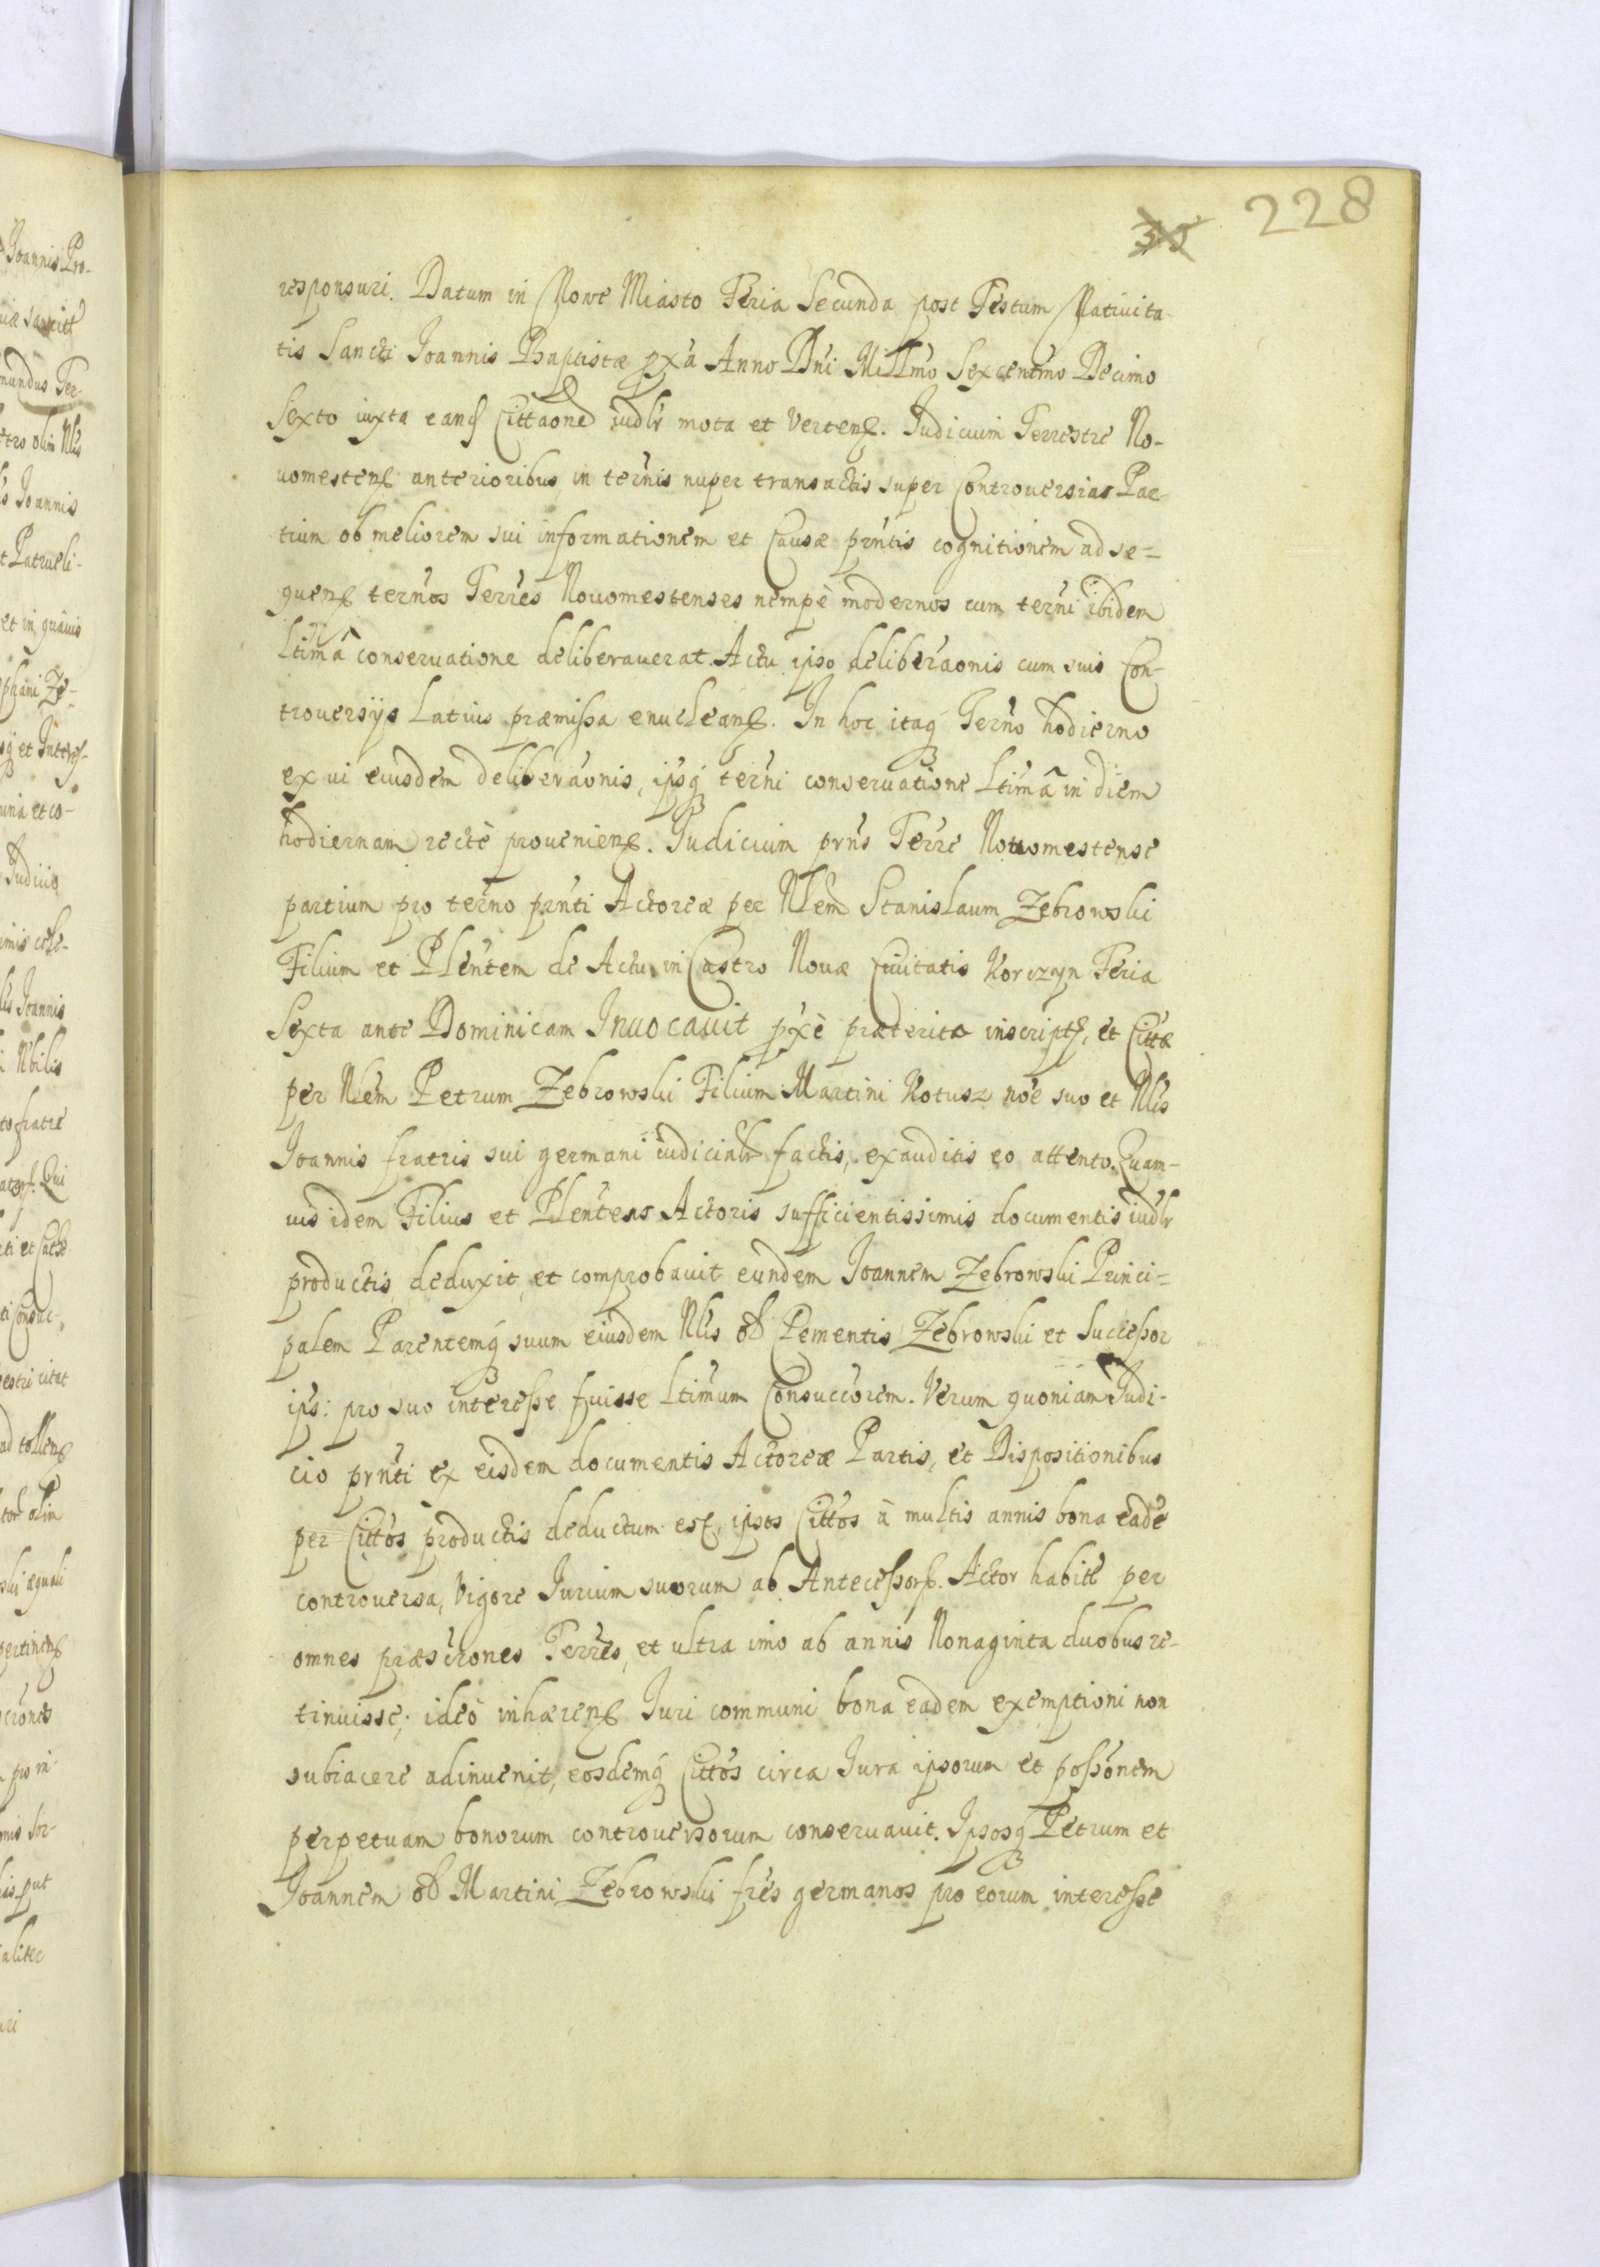 228
35
responsuri. Datum in Nowe Miasto Feria Secunda post Festum Nativita-
tis Sancti Joannis Baptistæ pxa Anno Dni Millmo Sexcentmo Decimo
Sexto iuxta eand Cittaone iudlr mota et verten. Judicium Terrestre No-
uomesten anterioribus in ternis nuper transactis super Controuersias Par-
tium ob meliorem sui informationem et Causæ prntis cognitionem ad se=
quen ternos Terres Nouomestenses nempè modernos cum terni ibidem
Ltimâ conseruatione deliberauerat. Actu ipso deliberaonis cum suis Con-
trouersÿs Latius præmissa enuclean. In hoc itaq Terno hodierno
ex ui eiusdem deliberaonis, ipsq terni conseruatione Ltimâ in diem
hodiernam rectè prouenien. Judicium prns Terre Nouomestense
partium pro terno prnti Actoreæ per Nlem Stanislaum Zebrowski
Filium et Plentem de Actu in Castro Nouæ Ciuitatis Korczyn Feria
Sexta ante Dominicam Inuocauit pxè præterita inscript, et Cittæ
per Nlem Petrum Zebrowski Filium Martini Kotusz noe suo et Nlis
Joannis fratris sui germani iudicialr factis, exauditis eo attento. Quam-
uis idem Filius et Plentens Actoris sufficientissimis documentis iudlr
productis deduxit, et comprobauit eundem Joannem Zebrowski Princi=
palem Parentemq suum eiusdem Nlis ol Clementis Zebrowski et Successor
ips: pro suo interesse fuisse Ltimum Consuccorem. Verum quoniam Judi-
cio prnti ex eisdem documentis Actoreæ Partis, et Dispositionibus
per Cittos productis deductum est, ipsos Cittos à multis annis bona eade
controuersa, Vigore Jurium suorum ab Antecessor. Actor habit per
omnes præscrones Terres, et ultra imo ab annis Nonaginta duobus re-
tinuisse; ideò inhæren Juri communi bona eadem exemptioni non
subiacere adinuenit, eosdemq Cittos circa Jura ipsorum et possonem
perpetuam bonorum controuersorum conseruauit. Ipsosq Petrum et
Joannem ol Martini Zebrowski fres germanos pro eorum interesse